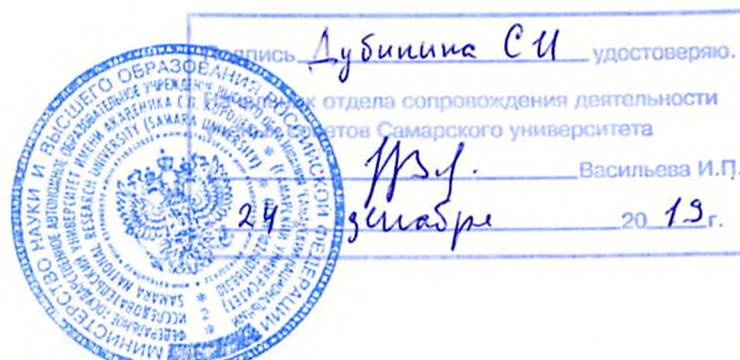 Подпись Дубинина СИ удостоверяю.
Начальник отдела сопровождения деятельности
советов Самарского университета
Васильева И.П.
24 декабря 2019 г.
МИНИСТЕРСТВО НАУКИ И ВЫСШЕГО ОБРАЗОВАНИЯ РОССИЙСКОЙ ФЕДЕРАЦИИ
ФЕДЕРАЛЬНОЕ ГОСУДАРСТВЕННОЕ АВТОНОМНОЕ ОБРАЗОВАТЕЛЬНОЕ УЧРЕЖДЕНИЕ ВЫСШЕГО ОБРАЗОВАНИЯ
ИССЛЕДОВАТЕЛЬСКИЙ УНИВЕРСИТЕТ ИМЕНИ АКАДЕМИКА С.П. КОРОЛЕВА (САМАРСКИЙ УНИВЕРСИТЕТ)
SAMARA NATIONAL RESEARCH UNIVERSITY (SAMARA UNIVERSITY)